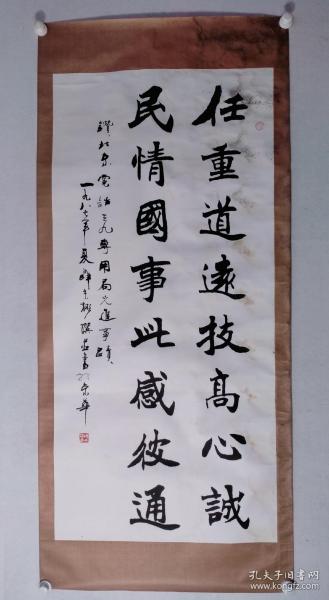 任重道遠技高心誠
民情國事此感彼通
讚北京電話三九專用局先進事蹟
一九八七年夏
孔夫子旧书网